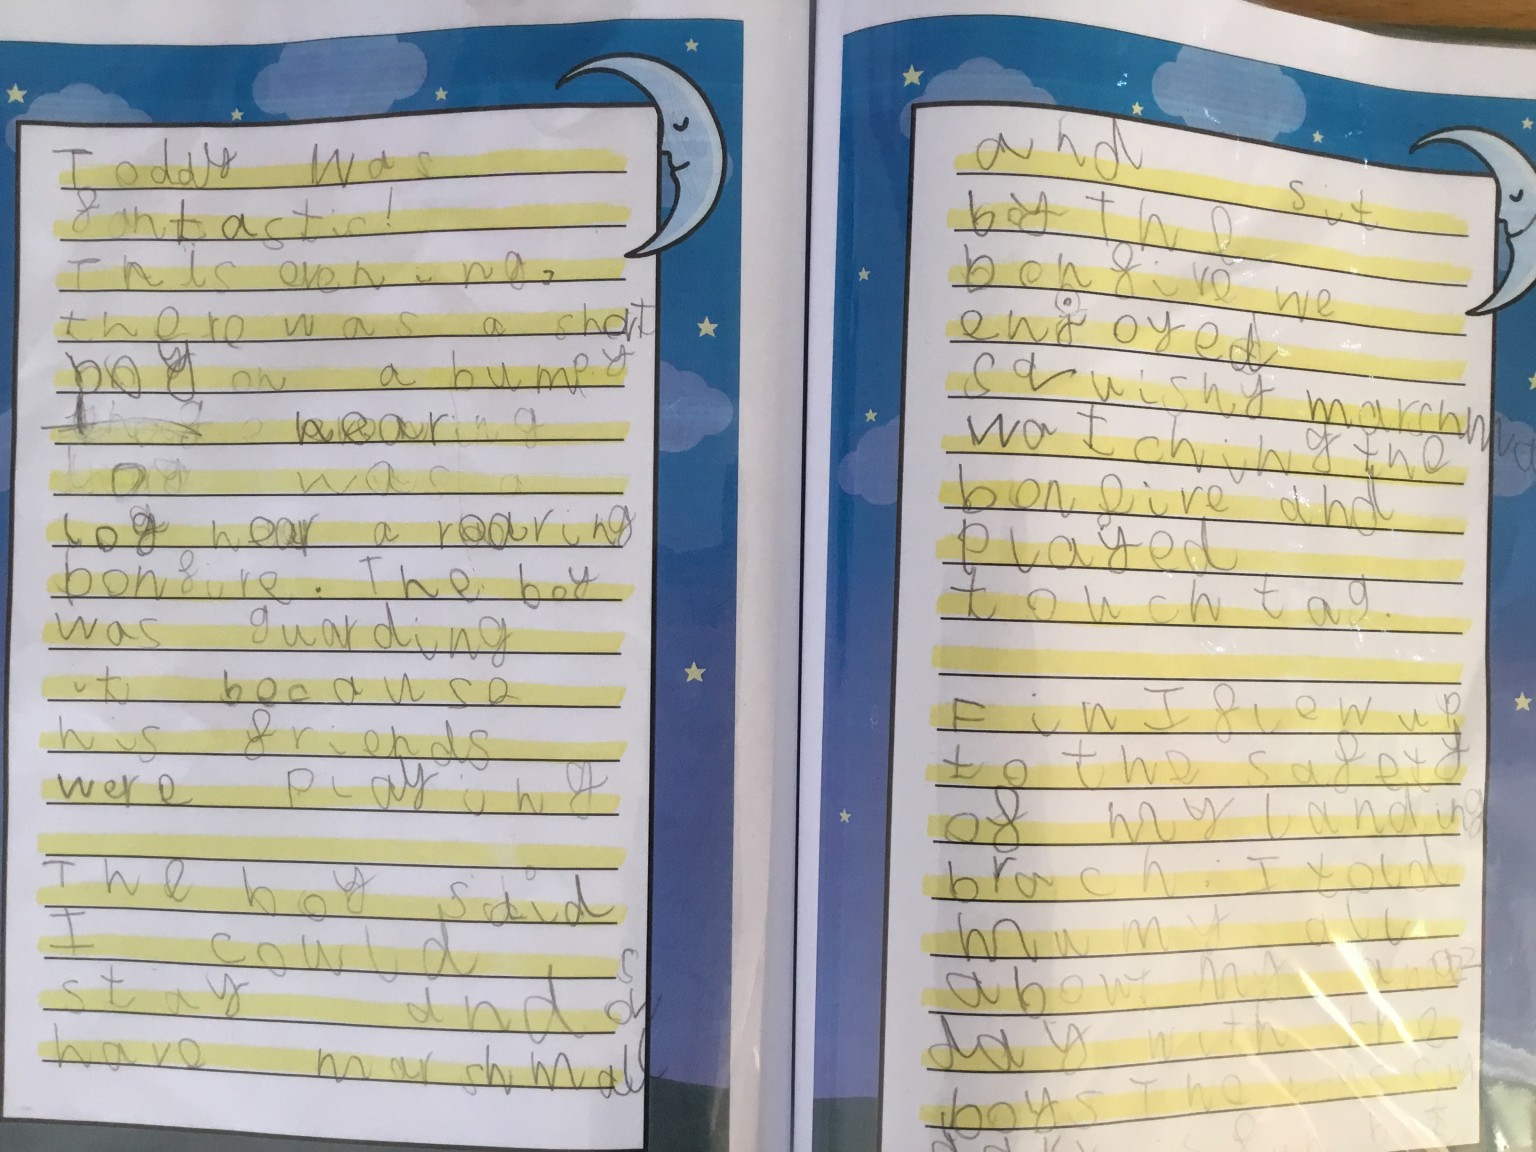 Toddy was
fantastic!
This evening,
there was a short
boy on a bumpy
log near a roaring
bonfire. The boy
was guarding
it because
his friends
were playing
The boy said
I could
stay and
have marshmall
and sit
by the
bonfire we
engoyed
sqwishy marchm
watching the
bonfire and
played
touch tag.
Fin I flew up
to the safety
of my landing
brach. I told
mumy all
about my
day with the
boys The